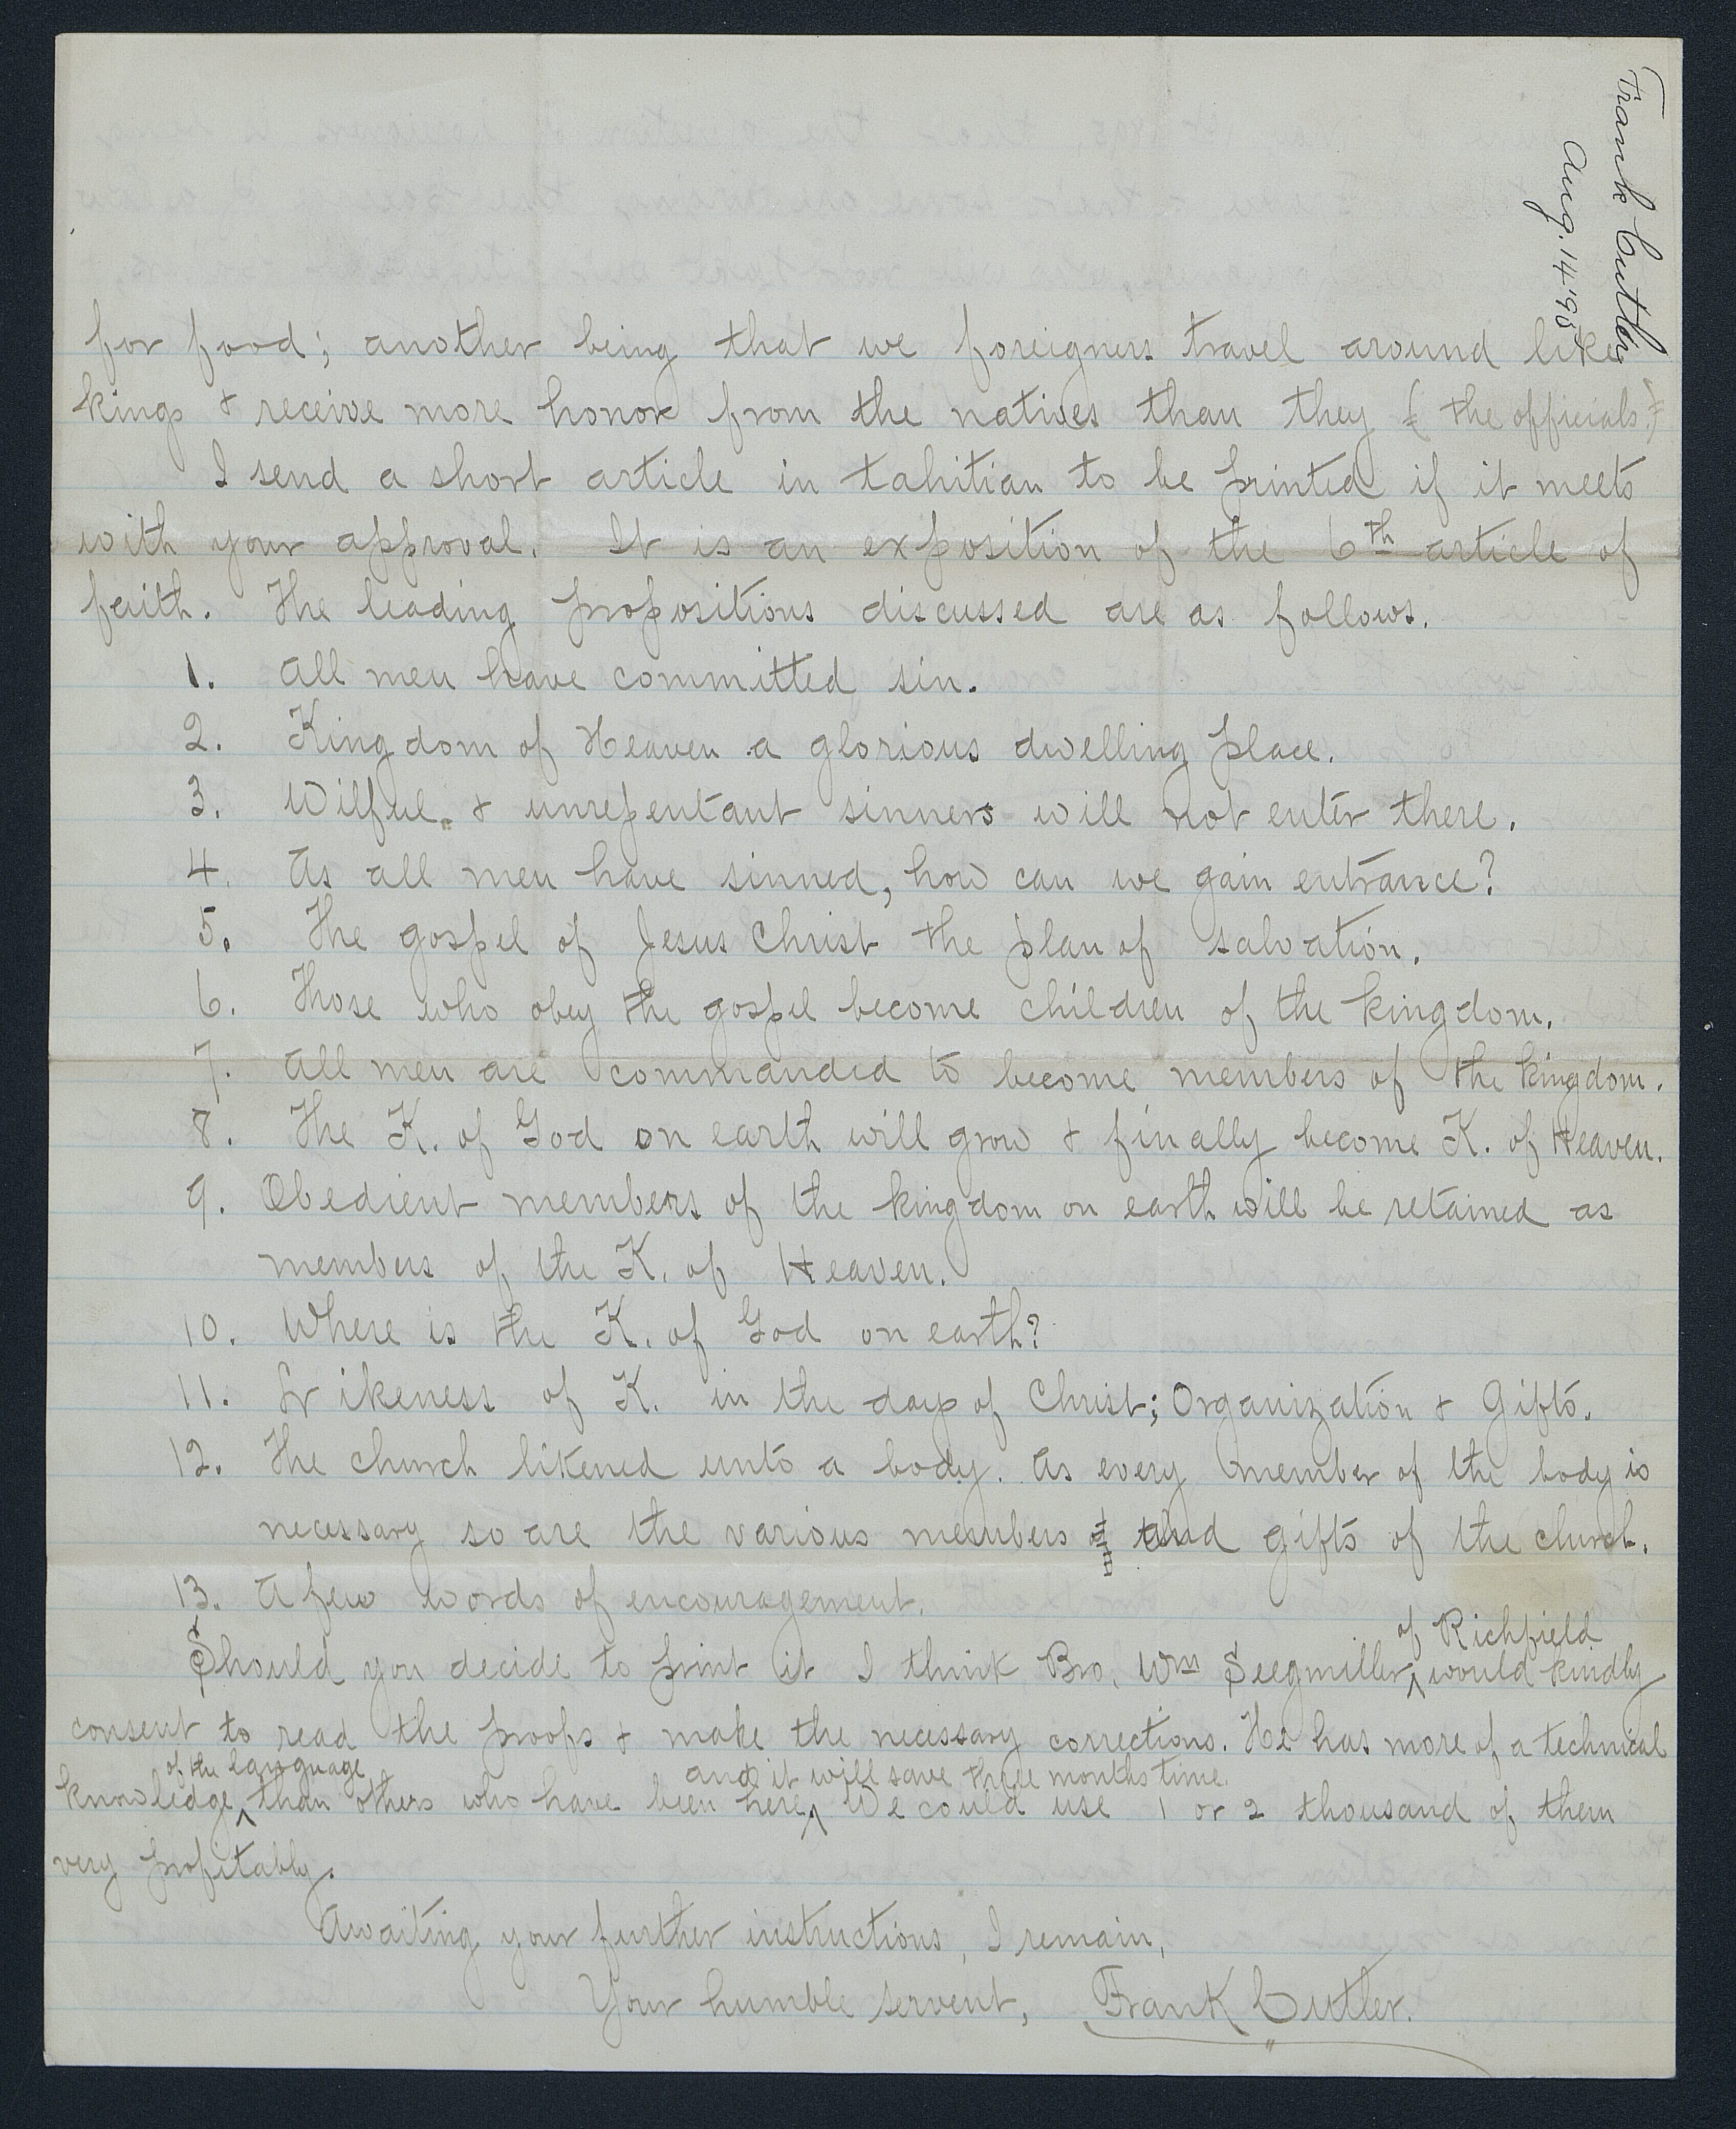 Frank Cutler
Aug. 14 '95
for food; another being that we foreigners travel around like
kings & receive more honor from the natives than they (the officials.)
I send a short article in tahitian to be printed if it meets
with your approval. It is an exposition of the 6th article of
faith. The leading propositions discussed are as follows.
1. All men have committed sin.
2. Kingdom of Heaven a glorious dwelling place.
3. Wilful & unrepentant sinners will not enter there.
4. As all men have sinned, how can we gain entrance?
5. The gospel of Jesus Christ the plan of salvation.
6. Those who obey the gospel become children of the kingdom.
7. All men are commanded to become members of the kingdom.
8. The K. of God on earth will grow & finally become K. of Heaven.
9. Obedient members of the kingdom on earth will be retained as
members of the K. of Heaven.
10. Where is the K. of God on earth?
11. Likeness of K. in the days of Christ; Organization & Gifts.
12. The church likened unto a body. As every member of the body is
necessary so are the various members and gifts of the church.
13. A few words of encouragement.
Should you decide to print it I think Bro. Wm Seegmiller of Richfield would kindly
consent to read the proofs & make the necessary corrections. He has more of a technical
knowledge of the language than others who have been here, and it will save three months time. We could use 1 or 2 thousand of them
very profitably.
Awaiting your further instructions, I remain,
Your humble servent, Frank Cutler.